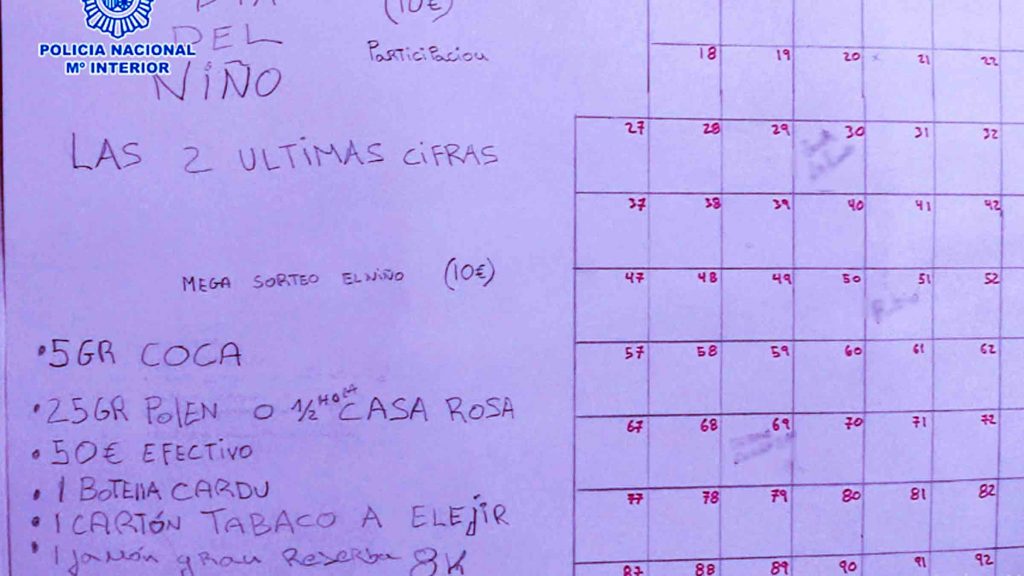 DIA (10€)
DEL Participacion
NIÑO
POLICIA NACIONAL
Mº INTERIOR
LAS 2 ULTIMAS CIFRAS
MEGA SORTEO EL NIÑO (10€)
•5GR COCA
•25GR POLEN O 1/2 HORA CASA ROSA
•50€ EFECTIVO
•1 BOTELLA CARDU
•1 CARTÓN TABACO A ELEJIR
•1 jamón gran Reserba 8K
18 19 20 21 22
27 28 29 30 31 32
37 38 39 40 41 42
47 48 49 50 51 52
57 58 59 60 61 62
67 68 69 70 71 72
77 78 79 80 81 82
87 88 89 90 91 92